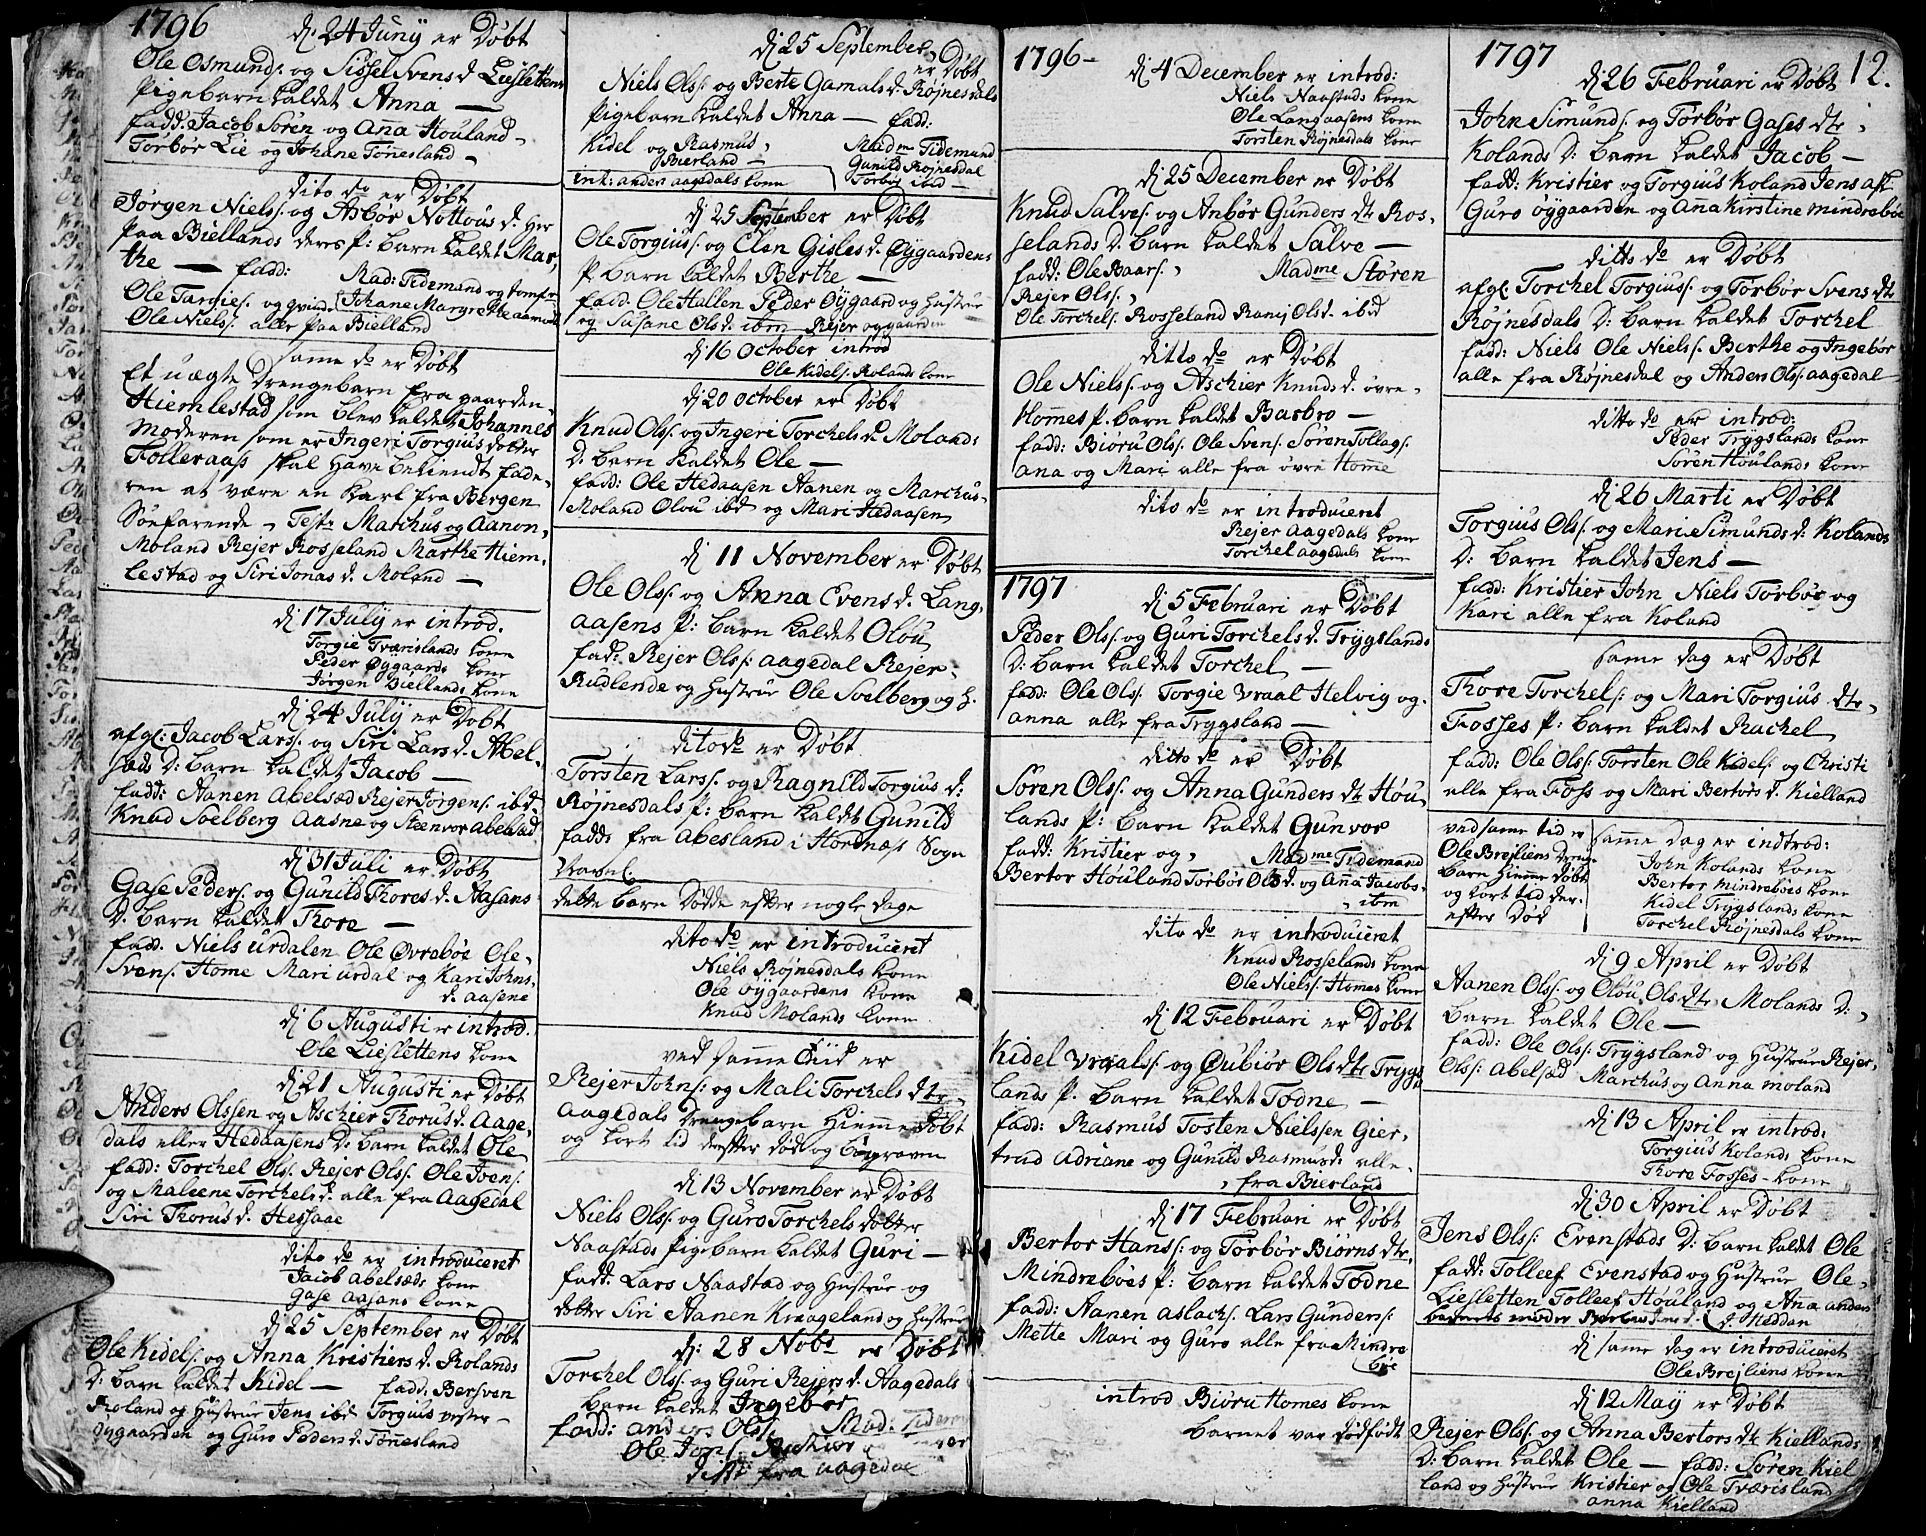 1796 dj: 24 Junÿ er Døbt
Ole Osmunds: og Sissel Svens d. Liesletten
Pigebarn kaldet Anna —
fadd: Jacob Søren og Anna Houland
Torbor Lie og Johane Tønnesland
dito do er Døbt
Jørgen Niels: og Asbør Nottous d. her
paa Biellands deres p: barn kaldet Mar,
the — fadd: Mad: Tidemand og
Ole Targies: og Johane Margrethe
Ole Niels: alle paa Bielland
same do er Døbt
Et uægte Drengebarn fra gaarden
Hiemlestad som blev kaldet Johannes
Moderen som er Ingeri Torgius dotter
Folleraas skal have bekiendt fade,
ren at være en karl fra Bergen
Søefarende Test: Marchus og Aanon,
Moland Rejer Rosseland Marthe Hiem,
lestad og Siri Jonas d. Moland —
dj 17 July er introd.
Torgie Tværislands kone
Peder Øygaards kone
Jørgen Biellands kone
dj 24 Julÿ er Døbt
afgl: Jacob Lars: og Siri Lars d. Abel,
sæds D: barn kaldet Jacob —
fadd: Aanen Abelsæd Rejer Jørgens: ibd
Knud Soelberg Aasne og Steenvor Abelsæd
dj 31 Juli er Døbt
Gase Peders: og Gunild Thores d. Aasans
D: barn kaldet Thore —
fadd. Niels urdalen Ole Øvrebøe Ole
Svens: Home Mari urdal og Kari Johns,
d. aasene
dj 6 Augusti er introd.
Ole Lieslettens kone
dj 21 Augusti er Døbt
Anders Olssen og Aschier Thorus d. Aage,
dals eller Hedaasens D: barn kaldet Ole
fadd: Torchel Ols: Rejer Ols: Ole Jvens:
og Maleene Torchels d. alle fra Aagedal
Siri Thorus d. Hessaae
dito do er introduceret
Jacob Abelsæds kone
Gase aasans kone
dj 25 September er Døbt
Ole Kidels: og Anna Kristiers d. Rolands
D: barn kaldet Kidel — fadd: Bersven
Roland og Hustrue Jens ibd Torgius vester
øygaarden og Guro Peders d. Tønnesland
dj 25 September er Døbt
Niels Ols: og Berte Gamals d. Røjnesdals
Pigebarn kaldet Anna — fadd:
Kidel og Rasmus Madme Tidemand
Bierland — Gunild Røjnesdal
int: anders aagedals kone Torbor ibid —
dj 25 September er Døbt
Ole Torgius: og Elen Gisles d. Øygaardens
P. barn kaldet Berthe —
fadd: Ole Hallen Peder Øygaard og Hustrue
og Susane Ols d. ibm Rejer øygaarden
dj 16 October introd
Ole Kidels: Rolands kone
dj 20 October er Døbt
Knud Ols: og Ingeri Torchels d. Molands
D: barn kaldet Ole —
fadd: Ole Hedaasen Aanen og Marchus
Moland Olou ibd og Mari Hedaasen
dj 11 November er Døbt
Ole Ols: og Anna Evens d. Lang,
aasens p: barn kaldet Oløu
fad: Rejer Ols: aagedal Rejer
Rudlende og Hustrue Ole Soelberg og H.
dito do er Døbt
Torsten Lars: og Ragnild Torgius d:
Røjnesdals p: barn kaldet Gunild
fadds fra Abesland i Hordnæs Sogn
dette barn Døde efter nogle dage
dito do er introduceret
Niels Røjnesdals kone
Ole Øygaardens kone
Knud Molands kone
ved samme tid er
Rejer Johns: og Mali Torchels dtr
Aagedals Drengebarn Hiemme Døbt
og kort tid derefter død og begraven
dj 13 November er Døbt
Niels Ols: og Guro Torchels dotter
Naastads Pigebarn kaldet Guri —
fadd. Lars Naastad og Hustrue og
dotter Siri Aanen Kraageland og Hustrue
dj: 28 Nobr er Døbt
Torchel Ols: og Guri Rejers d. Aagedals
barn kaldet Ingebør
fadd: anders Ols: Mad: Tidem
Ole Jons:
fra aagedal
1796 — dj 4 December er introd:
Niels Naastads kone
Ole Langaasens kone
Torsten Røjnesdals kone
dj 25 December er Døbt
Knud Salves: og Anbør Gunders dtr Ros,
selands D. barn kaldet Salve —
fadd: Ole Baars: Madme Støren
Rejer Ols:
Ole Torchels: Rosseland Ranij Ols d. ibid
ditto do er Døbt
Ole Niels: og Aschier Knuds d. øvre
Homes p. barn kaldet Barbro —
fadd: Biøru Ols: Ole Svens: Søren Tollags:
ana og Mari alle fra øvre Home
dito do er introduceret
Rejer Aagedals kone
Torchel aagedals kone
1797 dj 5 Februari er Døbt
Peder Ols: og Guri Torchels d. Trygslands
D: barn kaldet Torchel —
fadd: Ole Ols: Torgie Vraal Helvig og
anna alle fra Trygsland —
ditto do er Døbt
Søren Ols: og Anna Gunders dtr Høu,
lands p: barn kaldet Gunvor
fadd: Kristier og Madme Tidemand
Bertor Høuland Torbør Ols d. og Anna Jacobs,
itm
dito do er introduceret
Knud Rosselands kone
Ole Niels: Homes kone
dj 12 Februari er Døbt
Kidel Vraals: og Oubiør Ols dtr Trygs,
lands p. barn kaldet Todne —
fadd: Rasmus Tosten Nielssen Gier,
trud Adriane og Gunild Rasmus d. alle
fra Bierland
dj 17 Februari er Døbt
Bertor Hans: og Torbør Biørns dtr
Mindrebøes p: barn kaldet Todne
fadd: Aanen aslachs: Lars Gunders:
Mette Mari og Guro alle fra Mindre
bøe
introd Biøru Homes kone
barnet var dødfødt
1797 12.
dj 26 Februari er Døbt
John Simunds: og Torbør Gases dtr
Kolands D: barn kaldet Jacob —
fadd: Kristier og Torgius Koland Jens
Guro øygaarden og Anna Kirstine Mindrebøe
ditto do er Døbt
afgl: Torchel Torgius: og Torbør Svens dtr
Røjnesdals D: barn kaldet Torchel
fadd: Niels Ole Niels: Berthe og Ingebør
alle fra Røjnesdal og Anders Ols: aagedal
ditto do er introd:
Peder Trygslands kone
Søren Høulands kone
dj 26 Marti er Døbt
Torgius Ols: og Mari Simunds d: Kolands
D: barn kaldet Jens —
fadd: Kristier John Niels Torbør og
Kari alle fra Koland
same dag er Døbt
Thore Torchels: og Mari Torgius dtr
Fosses p: barn kaldet Rachel
fadd: Ole Ols: Torsten Ole Kidels: og Christi
alle fra Foss og Mari Bertors d. Kielland
ved same tid er
Ole Brejliens Dreng
barn hieme døbt
og kort tid der,
efter Død
samme dag er indtrod:
John Kolands kone
Bertor Mindrebøes kone
Kidel Trygslands kone
Torchel Røjnesdals kone
dj 9 April er Døbt
Aanen Ols: og Oløu Ols dtr Molands D:
barn kaldet Ole —
fadd: Ole Ols: Trygsland og Hustrue Rejer
Ols: Abelsæd Marchus og Anna Moland
dj 13 April er introd:
Torgius Kolands kone
Thore Fosses kone
dj 30 April er Døbt
Jens Ols: Evenstads D: barn kaldet Ole
fadd: Tollef Evenstad og Hustrue Ole
Liesletten Tollef Høuland og Ana anders
barnets moder d. Heddan
dj same dag er introduceret
Ole Brejliens kone
dj 12 Maÿ er Døbt
Rejer Ols: og Anna Bertors dtr Kiellands
D: barn kaldet Ole — fadd: Søren Kiel
land og Hustrue Kristier og Ole Tværisland
anna Kielland